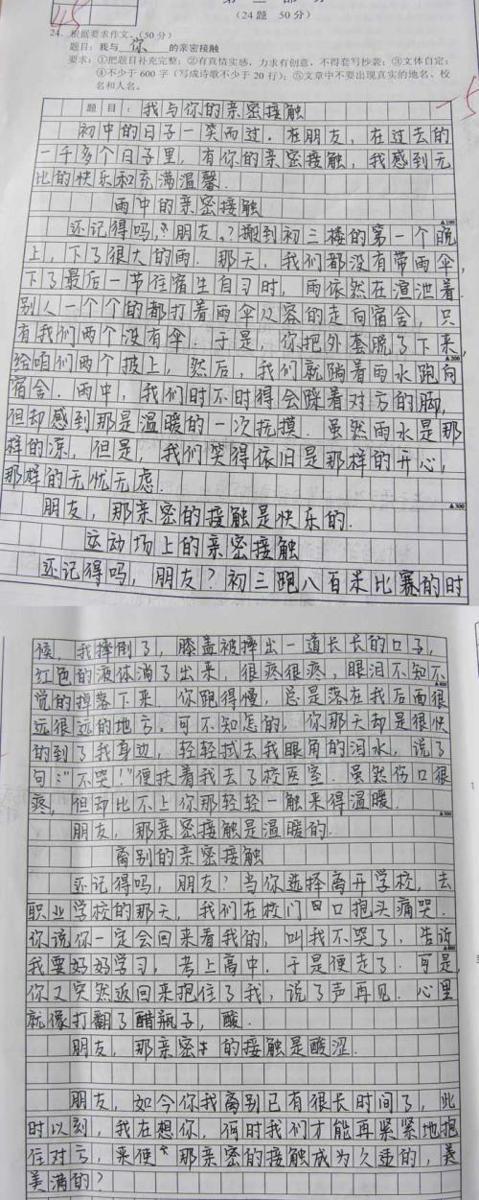 45
第二部分
(24题 50分)
24. 根据要求作文。(50分)
题目:我与 你 的亲密接触
要求:①把题目补充完整;②有真情实感,力求有创意,不得套写抄袭;③文体自定;
④不少于600字(写成诗歌不少于20行);⑤文章中不要出现真实的地名、校
名和人名。
-5
题目:我与你的亲密接触
初中的日子一笑而过。在朋友,在过去的
一千多个日子里,有你的亲密接触,我感到无
比的快乐和充满温馨.
雨中的亲密接触
还记得吗,朋友?搬到初三楼的第一个晚
上,下了很大的雨.那天,我们都没有带雨伞,
下了最后一节住宿生自习时,雨依然在渲池着.
别人一个个的都打着雨伞从容的走向宿舍,只
有我们两个没有伞.于是,你把外套脱了下来,
给咱们两个披上,然后,我们就踏着雨水跑向
宿舍.雨中,我们时不时得会踩着对方的脚,
但却感到那是温暖的一次抚摸.虽然雨水是那
样的凉,但是,我们笑得依旧是那样的开心,
那样的无忧无虑.
朋友,那亲密的接触是快乐的.
运动场上的亲密接触
还记得吗,朋友?初三跑八百米比赛的时
候,我摔倒了,膝盖被摔出一道长长的口子,
红色的液体淌了出来,很疼很疼,眼泪不知不
觉的掉落下来.你跑得慢,总是落在我后面很
远很远的地方.可不知怎的,你那天却是很快
的到了我身边,轻轻拭去我眼角的泪水,说了
句:"不哭!"便扶着我去了校医室.虽然伤口很
疼,但却比不上你那轻轻一触来得温暖.
朋友,那亲密接触是温暖的.
离别的亲密接触
还记得吗,朋友?当你选择离开学校,去
职业学校的那天,我们在校门口抱头痛哭.
你说你一定会回来看我的,叫我不哭了,告诉
我要好好学习,考上高中,于是便走了.可是,
你又突然返回来抱住了我,说了声再见.心里
就像打翻了醋瓶子,酸.
朋友,那亲密的接触是酸涩.
朋友,如今你我离别已有很长时间了,此
时以刻,我在想你,何时我们才能再紧紧地抱
住对方,来使那亲密的接触成为久违的,美
美满的?